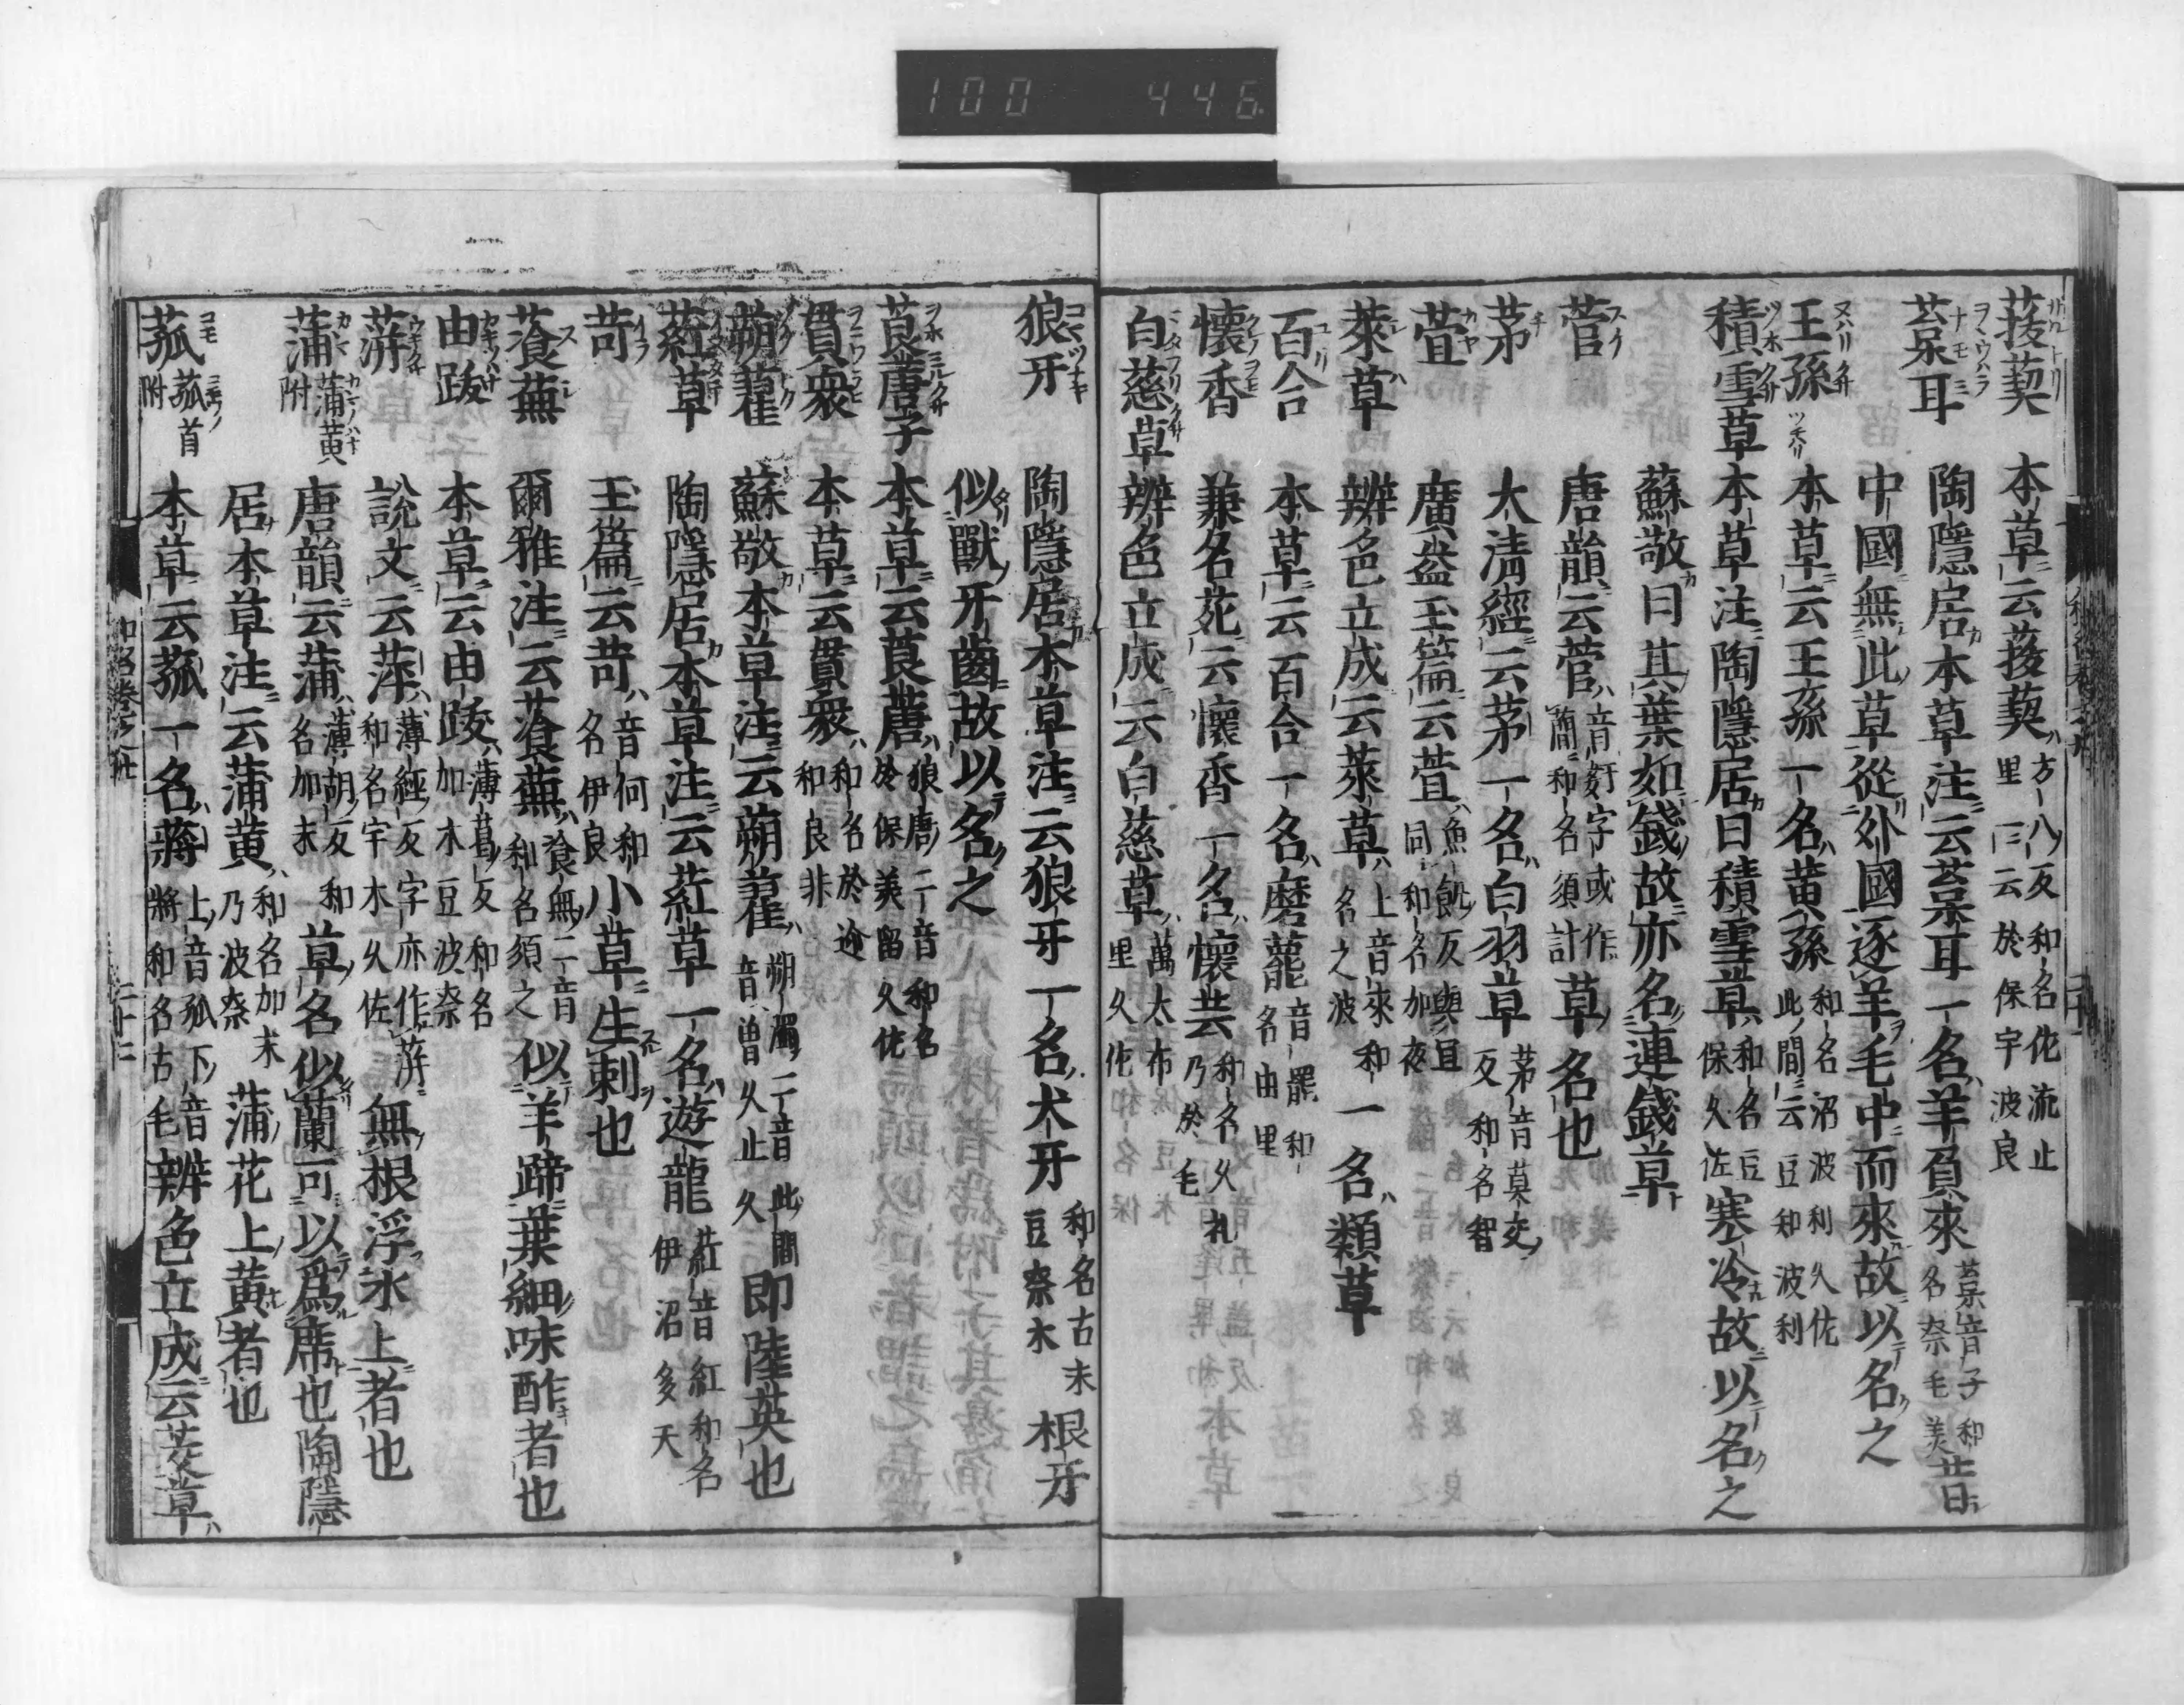 100 446.
菝葜 本草云菝葜 方八反和名佐流止里 一云於保宇波良
葈耳 陶隱居本草注云葈耳一名羊負來 葈音子和名奈毛美 昔
中國無此草從外國逐羊毛中而來故以名之
王孫 本草云王孫一名黄孫 和名沼波利久佐 此間云豆知波利
積雪草 本草注陶隱居曰積雪草 和名豆保久佐 寒冷故以名之
蘇敬曰其葉如錢故亦名連錢草
菅 唐韻云菅 音 字或作蕳和名須計 草名也
茅 太清經云茅一名白羽草 茅音莫交反和名智
萱 廣益玉篇云萱 魚飢反與 同和名加夜
萊草 辨色立成云萊草 上音來和名之波 一名類草
百合 本草云百合一名磨䕷 音罷和名由里
懷香 兼名苑云懷香一名懷芸 和名久礼乃於毛
白慈草 辨色立成云白慈草 萬太布里久佐
狼牙 陶隱居本草注云狼牙一名犬牙 和名古末豆奈木 根牙
似獸牙齒故以名之
莨蓎子 本草云莨蓎 狼唐二音和名於保美留久佐
貫衆 本草云貫衆 和名於 和良非
蒴藋 蘇敬本草注云蒴藋 朔濁二音此間音曽久止久 即陸英也
葒草 陶隱居本草注云葒草一名遊龍 葒音紅和名伊沼多天
苛 玉篇云苛 音何和名伊良 小草生刺也
蕵蕪 爾雅注云蕵蕪 飧無二音和名須之 似羊蹄葉細味酢者也
由跋 本草云由跋 薄葛反和名加木豆波奈
蓱 說文云萍 薄經反字亦作蓱和名宇木久佐 無根浮水上者也
蒲 蒲黄附 唐韻云蒲 薄胡反和名加末 草名似蘭可以爲席也陶隱
居本草注云蒲黄 和名加末乃波奈 蒲花上黄者也
菰 菰首附 本草云菰一名蔣 上音孤下音將和名古毛 辨色立成云茭草
二十二